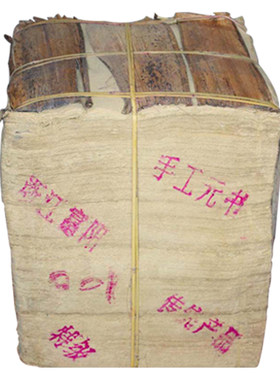 手工元书
浙江富阳
001
特级
传统产品